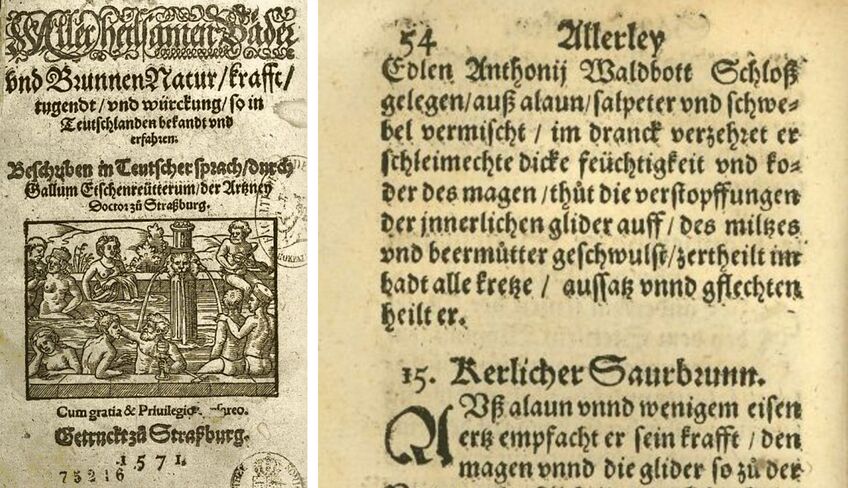 Aller heilsamen Bäder
vnd Brunnen Natur/krafft/
tugendt/vnd würckung/so in
Teutschlanden bekandt vnd
erfahren.
Beschriben in Teutscher sprach/durch
Gallum Etschenreütterum/der Artzney
Doctor zů Straßburg.
Cum gratia & Priuilegio
Getruckt zů Straßburg.
1571.
75216
54 Allerley
Edlen Anthonij Waldbott Schloß
gelegen/auß alaun/salpeter vnd schwe=
bel vermischt / im dranck verzehret er
schleimechte dicke feüchtigkeit vnd ko=
der des magen/thůt die verstopffungen
der jnnerlichen glider auff/des miltzes
vnd beermůtter geschwulst/zertheilt im
badt alle kretze / aussatz vnnd gflechten
heilt er.
15. Kerlicher Saurbrunn.
AVß alaun vnnd wenigem eisen
ertz empfacht er sein krafft / den
magen vnnd die glider so zů der